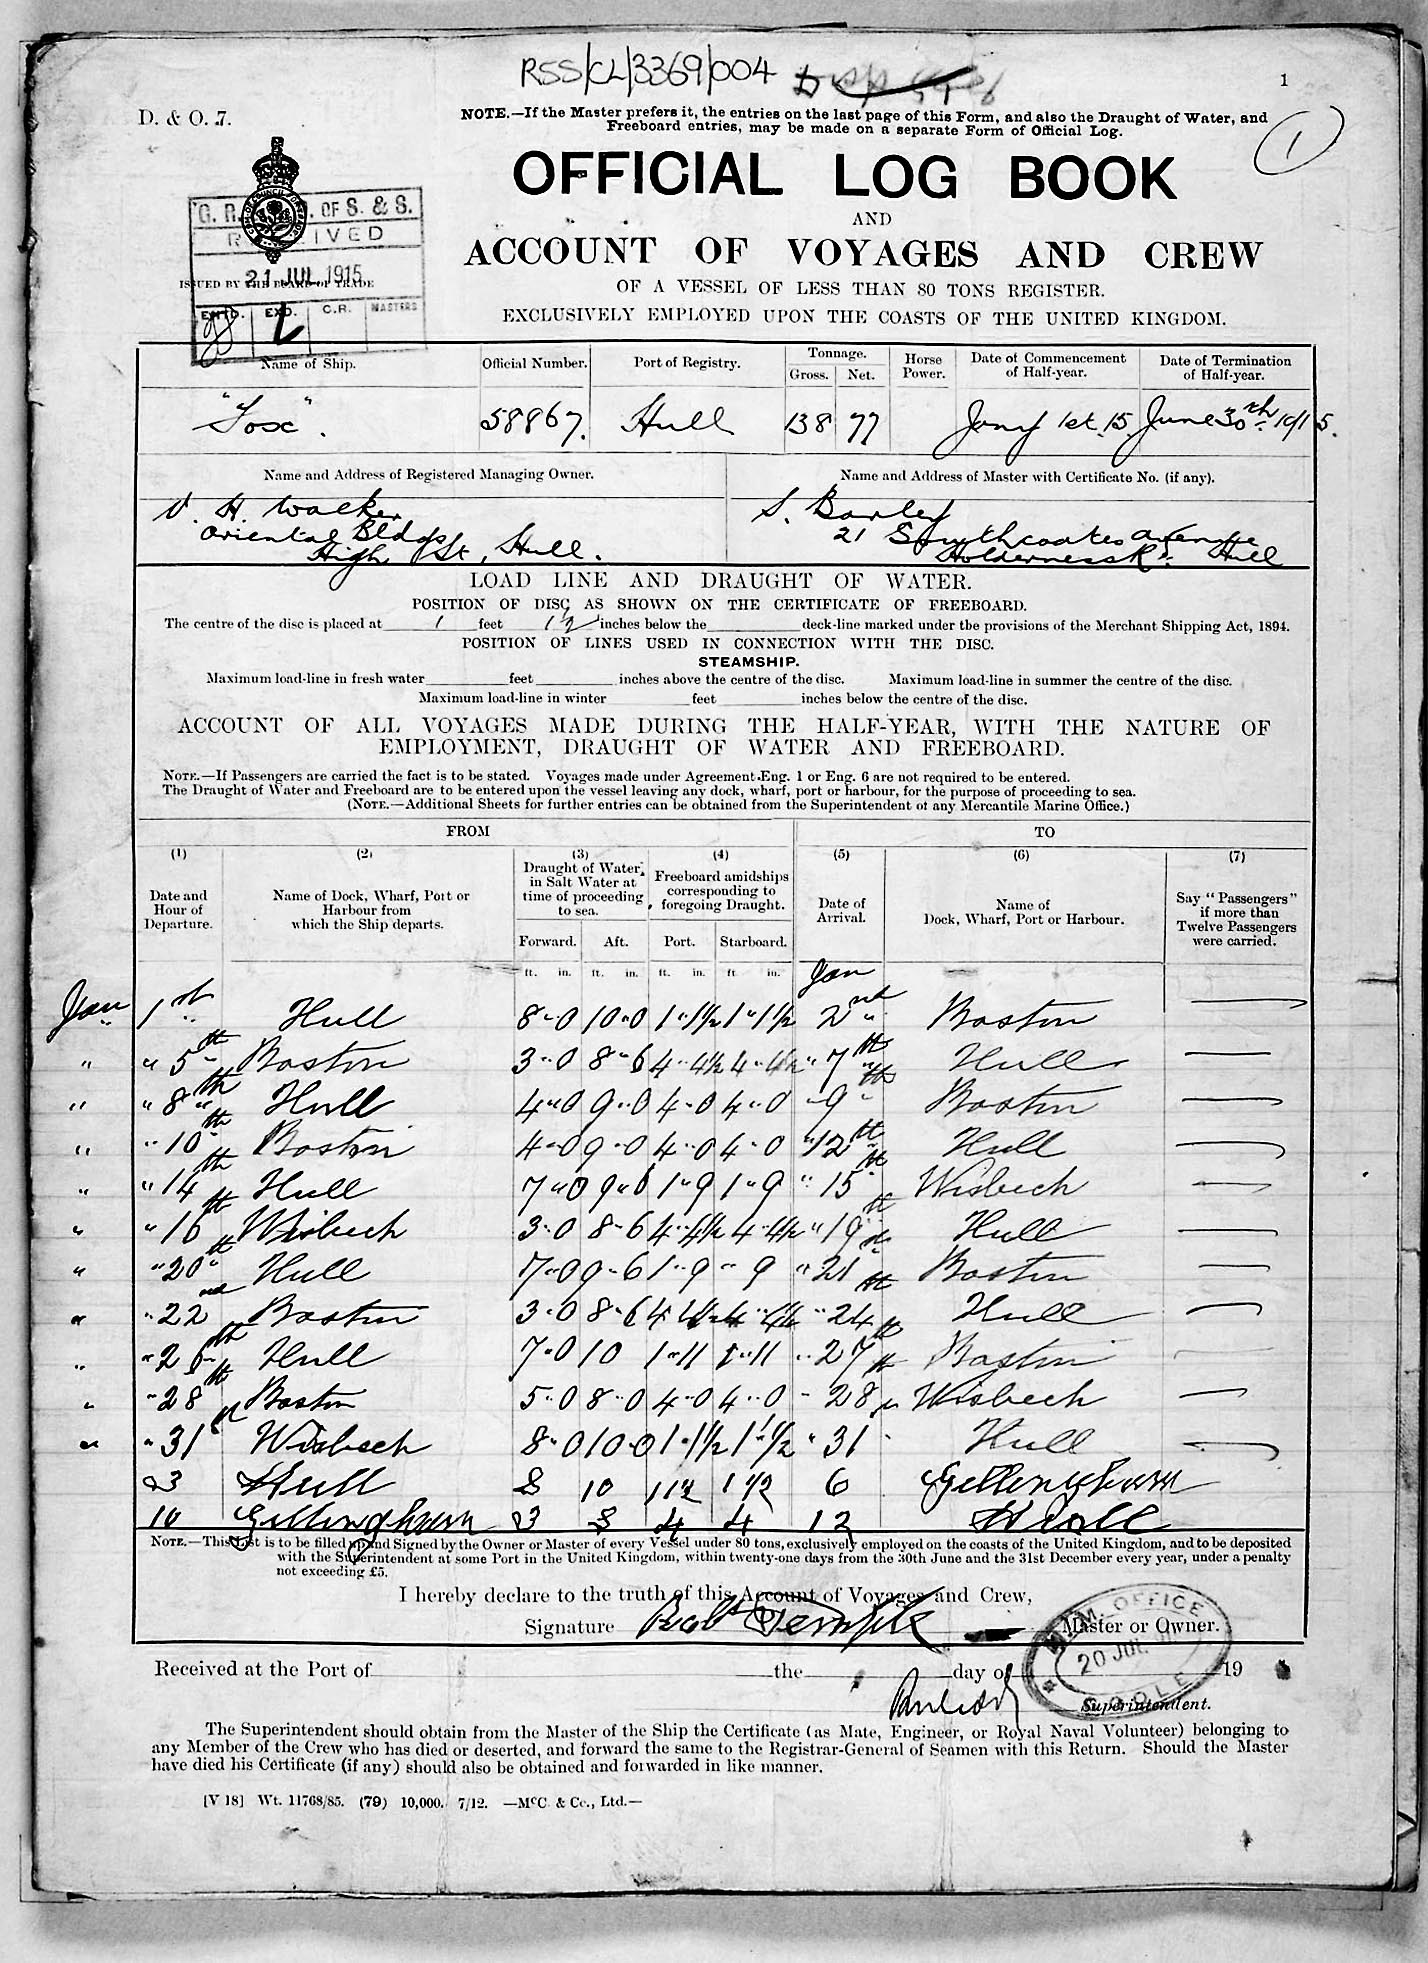 RSS/CL/3369/004
1
D. & O. 7.
NOTE.—If the Master prefers it, the entries on the last page of this Form, and also the Draught of Water, and
Freeboard entries, may be made on a separate Form of Official Log.
1
OFFICIAL LOG BOOK
AND
ACCOUNT OF VOYAGES AND CREW
OF A VESSEL OF LESS THAN 80 TONS REGISTER.
EXCLUSIVELY EMPLOYED UPON THE COASTS OF THE UNITED KINGDOM.
OF S. & S.
21 JUL 1915
ISSUED BY THE BOARD OF TRADE
ENTD. EXD. C.R. MASTERS
Name of Ship. Official Number. Port of Registry. Tonnage. Gross. Net. Horse Power. Date of Commencement of Half-year. Date of Termination of Half-year.
"Fox". 58867. Hull 138 77 Jany 1st.15. June 30th 1915.
Name and Address of Registered Managing Owner. Name and Address of Master with Certificate No. (if any).
H. Walker S. Barley
Oriental Bldgs 21 Southcoates Avenue
High St, Hull. Holderness Rd. Hull
LOAD LINE AND DRAUGHT OF WATER.
POSITION OF DISC, AS SHOWN ON THE CERTIFICATE OF FREEBOARD.
The centre of the disc is placed at 1 feet 1½ inches below the deck-line marked under the provisions of the Merchant Shipping Act, 1894.
POSITION OF LINES USED IN CONNECTION WITH THE DISC.
STEAMSHIP.
Maximum load-line in fresh water feet inches above the centre of the disc. Maximum load-line in summer the centre of the disc.
Maximum load-line in winter feet inches below the centre of the disc.
ACCOUNT OF ALL VOYAGES MADE DURING THE HALF-YEAR, WITH THE NATURE OF
EMPLOYMENT, DRAUGHT OF WATER AND FREEBOARD.
NOTE.—If Passengers are carried the fact is to be stated. Voyages made under Agreement Eng. 1 or Eng. 6 are not required to be entered.
The Draught of Water and Freeboard are to be entered upon the vessel leaving any dock, wharf, port or harbour, for the purpose of proceeding to sea.
(NOTE.—Additional Sheets for further entries can be obtained from the Superintendent of any Mercantile Marine Office.)
FROM TO
(1) (2) (3) (4) (5) (6) (7)
Date and Hour of Departure. Name of Dock, Wharf, Port or Harbour from which the Ship departs. Draught of Water in Salt Water at time of proceeding to sea. Freeboard amidships corresponding to foregoing Draught. Date of Arrival. Name of Dock, Wharf, Port or Harbour. Say "Passengers" if more than Twelve Passengers were carried.
Forward. Aft. Port. Starboard.
ft. in. ft. in. ft. in. ft. in. Jan
Jan 1st Hull 8-0 10-0 1-1½ 1-1½ 2nd Boston —
" " 5th Boston 3-0 8-6 4-4½ 4-4½ " 7th Hull —
" " 8th Hull 4-0 9-0 4-0 4-0 " 9th Boston —
" " 10th Boston 4-0 9-0 4-0 4-0 " 12th Hull —
" " 14th Hull 7-0 9-6 1-9 1-9 " 15th Wisbech —
" " 16th Wisbech 3-0 8-6 4-4½ 4-4½ " 19th Hull —
" " 20th Hull 7-0 9-6 1-9 - 9 " 21st Boston —
" " 22nd Boston 3-0 8-6 4 4½ 4 4½ " 24th Hull —
" " 26th Hull 7-0 10 1-11 1-11 " 27th Boston —
" " 28th Boston 5-0 8-0 4-0 4-0 " 28th Wisbech —
" " 31st Wisbech 8-0 10-0 1-1½ 1-1½ " 31st Hull —
3 Hull 8 10 1 1½ 1 1½ 6 Gillingham
10 Gillingham 3 8 4 4 12 Hull
NOTE.—This List is to be filled up and Signed by the Owner or Master of every Vessel under 80 tons, exclusively employed on the coasts of the United Kingdom, and to be deposited
with the Superintendent at some Port in the United Kingdom, within twenty-one days from the 30th June and the 31st December every year, under a penalty
not exceeding £5.
I hereby declare to the truth of this Account of Voyages and Crew,
Signature Robt Temple Master or Owner.
M.M. OFFICE
20 JUL
GOOLE
Received at the Port of the day of 19
Superintendent.
The Superintendent should obtain from the Master of the Ship the Certificate (as Mate, Engineer, or Royal Naval Volunteer) belonging to
any Member of the Crew who has died or deserted, and forward the same to the Registrar-General of Seamen with this Return. Should the Master
have died his Certificate (if any) should also be obtained and forwarded in like manner.
[V 18] Wt. 11768/85. (79) 10,000. 7/12. —McC. & Co., Ltd.—